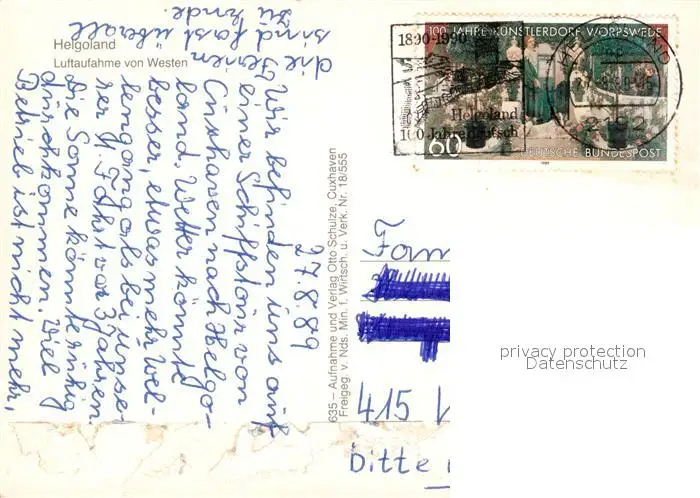 Helgoland
Luftaufahme von Westen
27.8.89
Wir befinden uns auf
einer Schiffstour von
Cuxhaven nach Helgo-
land. Wetter könnte
besser, etwas mehr Wel-
lengang als bei unse-
rer 1. Fahrt vor 3 Jahren.
Die Sonne könnte ruhig
durchkommen. Viel
Betrieb ist nicht mehr,
die Ferien
sind fast überall
zu Ende.
635 – Aufnahme und Verlag Otto Schulze, Cuxhaven
Freigeg. v. Nds. Min. f. Wirtsch. u. Verk. Nr. 18/555
1890-1990
Helgoland
100 Jahre deutsch
100 JAHRE KÜNSTLERDORF WORPSWEDE
60
DEUTSCHE BUNDESPOST
1989
2192
Fam
415
Bitte
privacy protection
Datenschutz